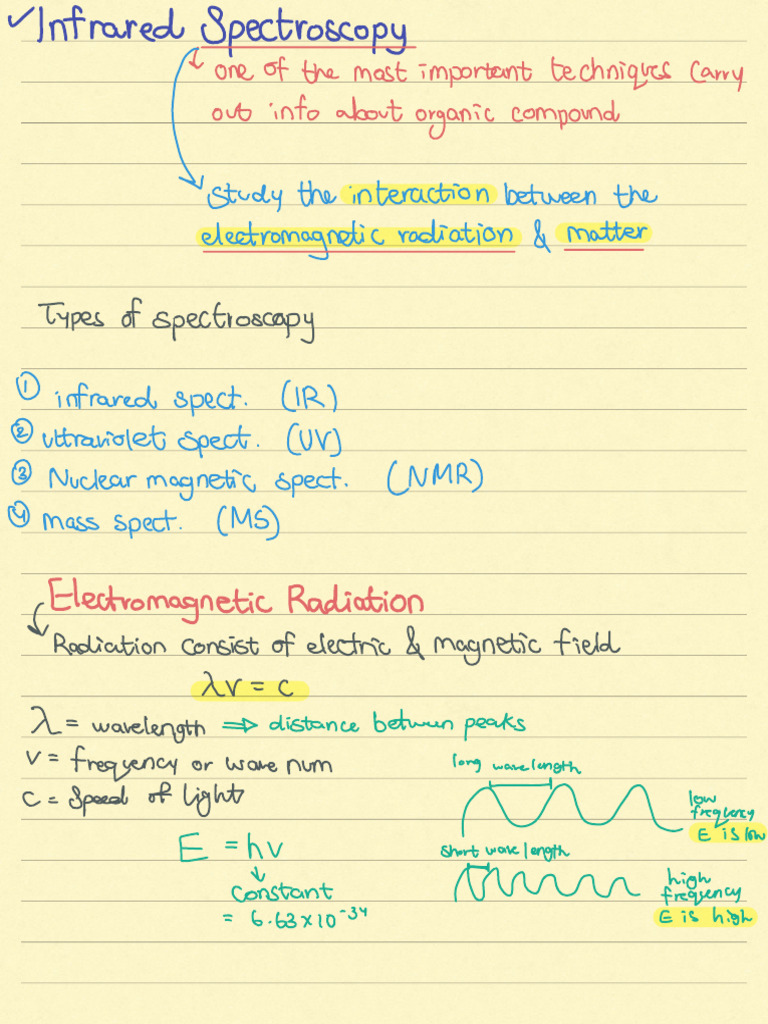 ✓Infrared Spectroscopy
one of the most important techniques carry
out info about organic compound
study the interaction between the
electromagnetic radiation & matter
Types of spectroscopy
① infrared spect. (IR)
② ultraviolet spect. (UV)
③ Nuclear magnetic spect. (NMR)
④ mass spect. (MS)
Electromagnetic Radiation
Radiation consist of electric & magnetic field
λν = c
λ = wavelength ⇒ distance between peaks
ν = frequency or wave num
c = speed of light
long wavelength
low
frequency
E is low
E = hν
short wavelength
high
frequency
E is high
constant
= 6.63×10⁻³⁴